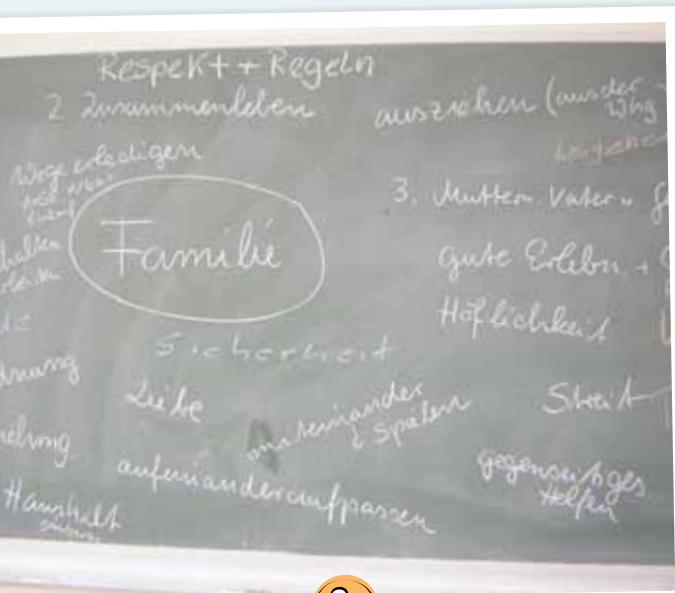 Respekt + Regeln
2 Zusammenleben
ausziehen (aus der
Whg
Wege erledigen
3. Mutter u. Vater u.
Familie
gute Erlebn. +
Höflichkeit
Sicherheit
Liebe
miteinander
Spielen
Streit
aufeinanderaufpassen
gegenseitiges
Helfen
Haushalt